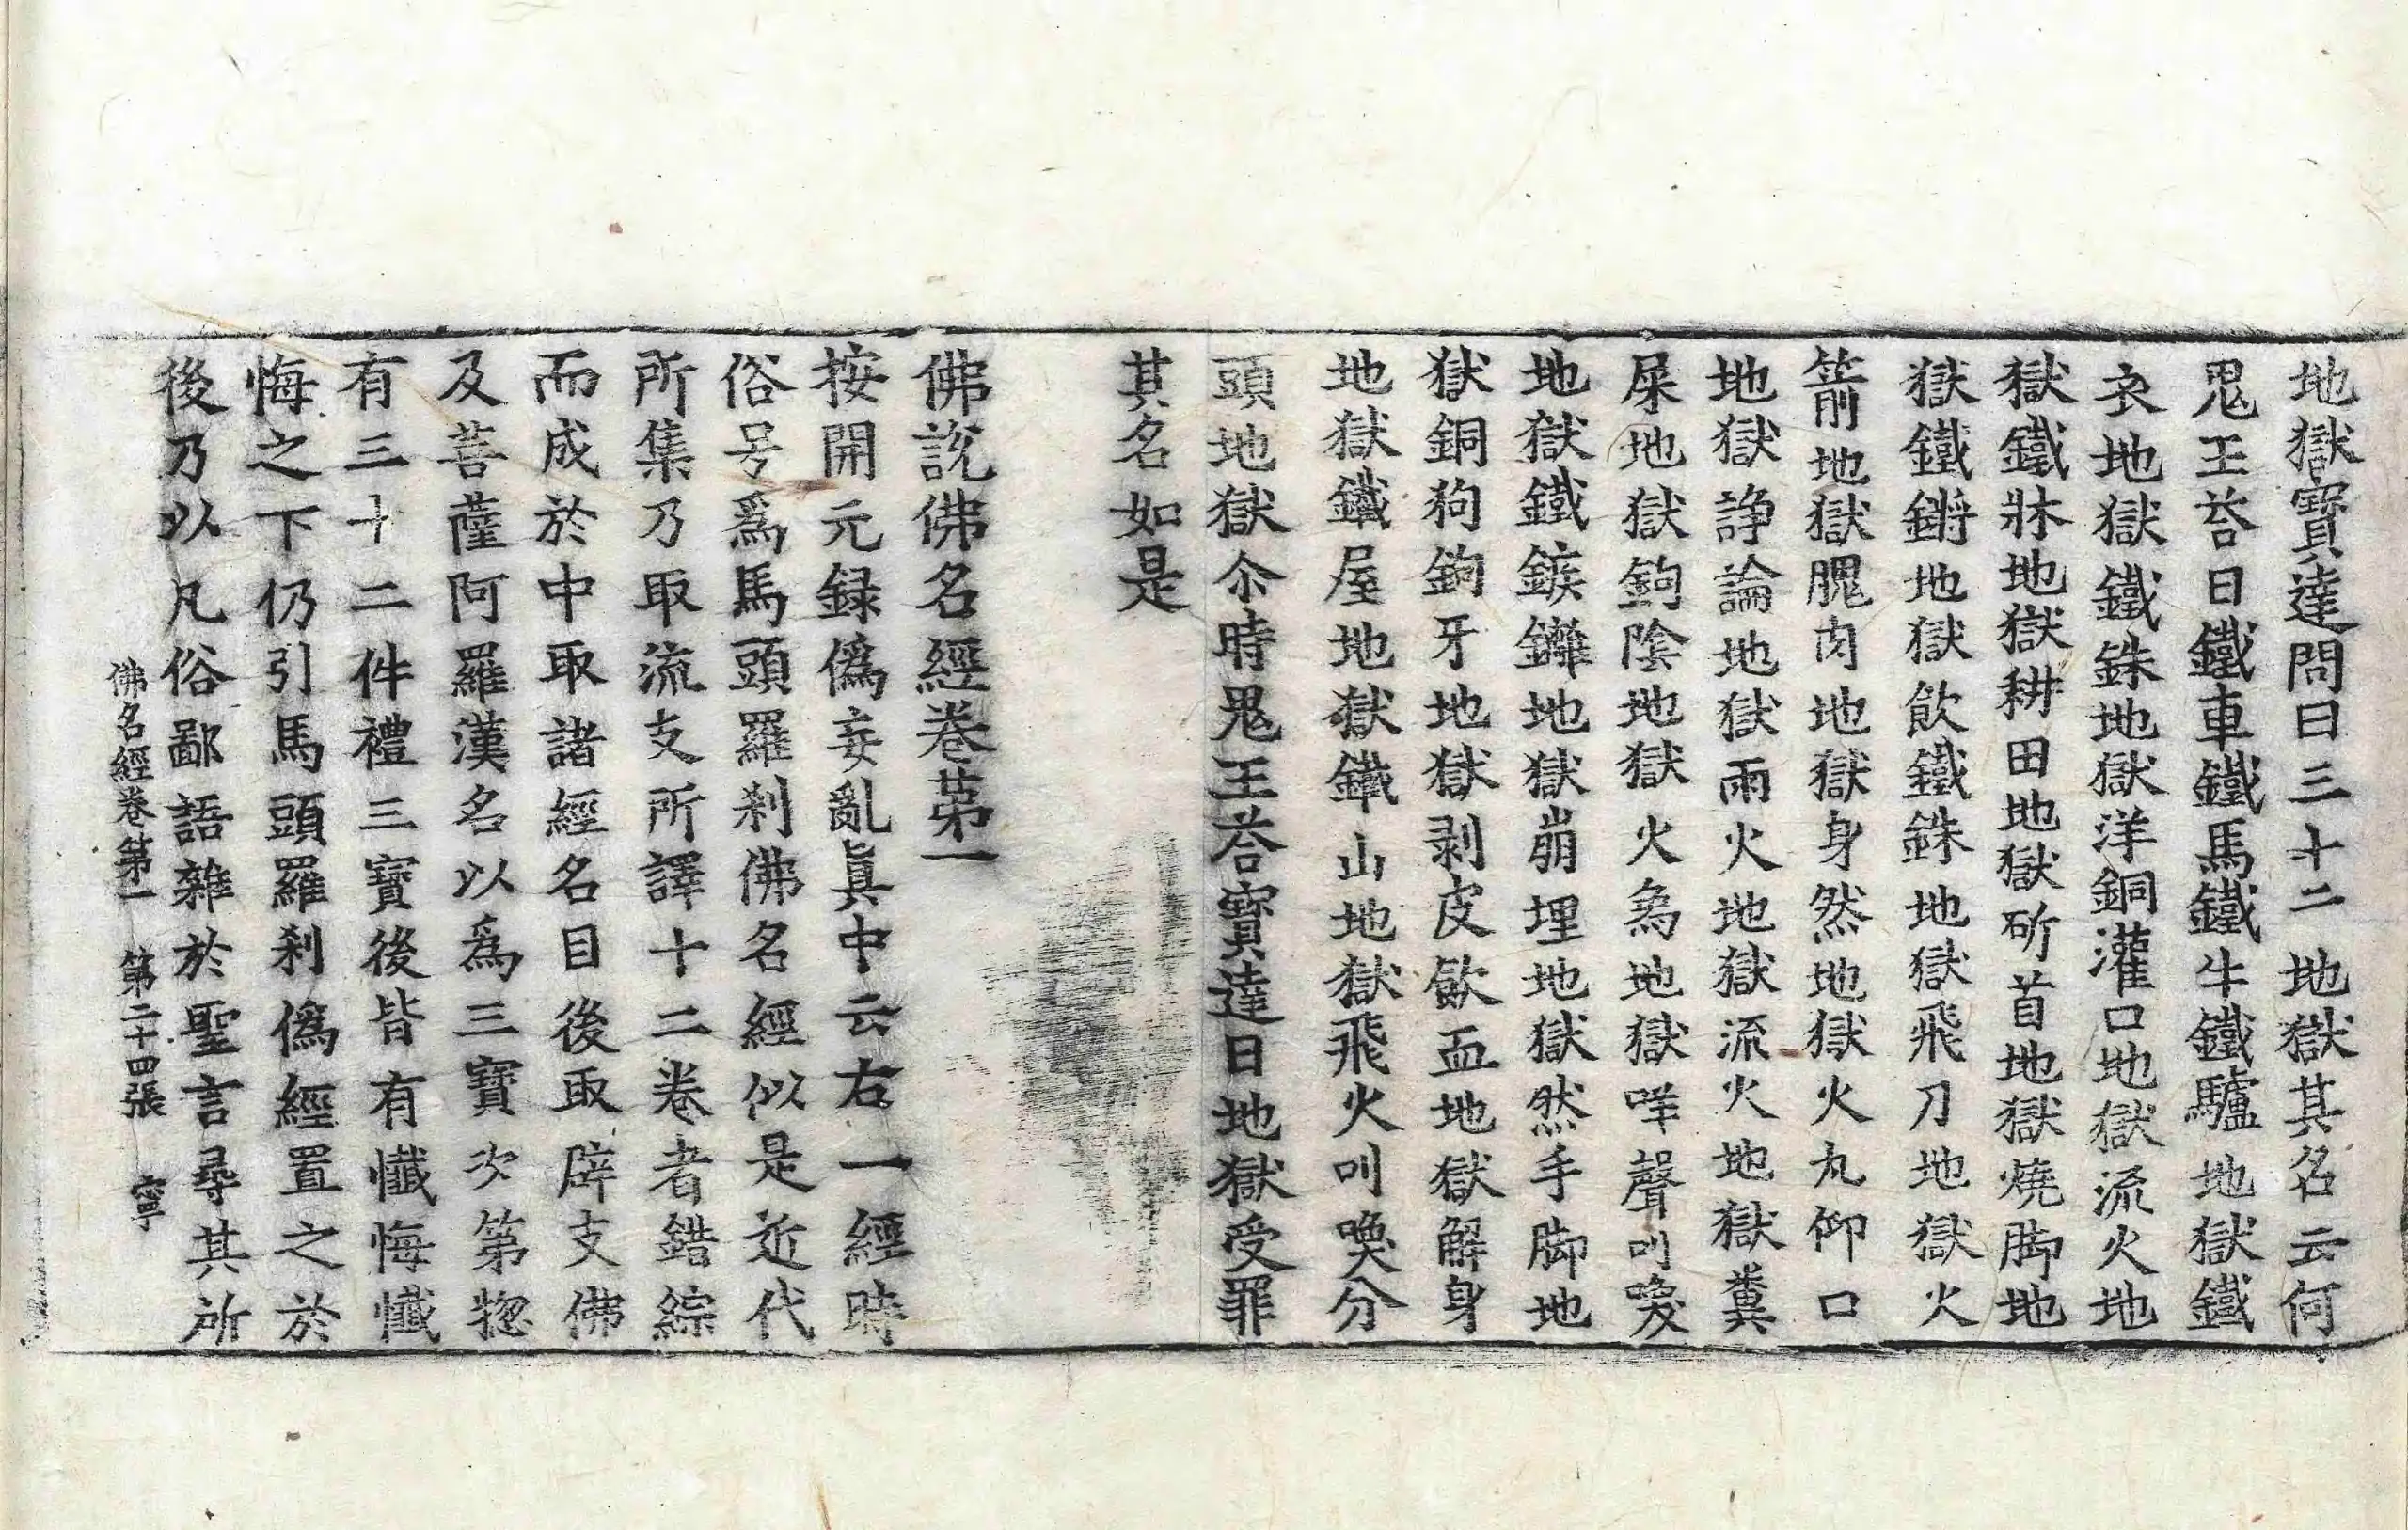 地獄寶達問曰三十二地獄其名云何
鬼王荅曰鐵車鐵馬鐵牛鐵驢地獄鐵
衣地獄鐵銖地獄洋銅灌口地獄流火地
獄鐵牀地獄耕田地獄斫首地獄燒脚地
獄鐵鏘地獄飲鐵銖地獄飛刀地獄火
箭地獄䐜肉地獄身然地獄火丸仰口
地獄諍論地獄雨火地獄流火地獄糞
屎地獄鉤陰地獄火象地獄咩聲叫喚
地獄鐵鏃鑺地獄崩埋地獄然手脚地
獄銅狗鉤牙地獄剥皮飲血地獄解身
地獄鐵屋地獄鐵山地獄飛火叫喚分
頭地獄尒時鬼王荅寶達曰地獄受罪
其名如是
佛說佛名經卷苐一
按開元録僞妄亂眞中云右一經時
俗号爲馬頭羅刹佛名經似是近代
所集乃取流支所譯十二卷者錯綜
而成於中取諸經名目後取辟支佛
及菩薩阿羅漢名以爲三寶次第揔
有三十二件禮三寶後皆有懺悔懺
悔之下仍引馬頭羅刹僞經置之於
後乃以凡俗鄙語雜於聖言尋其所
佛名經卷第一　第二十四張　寧